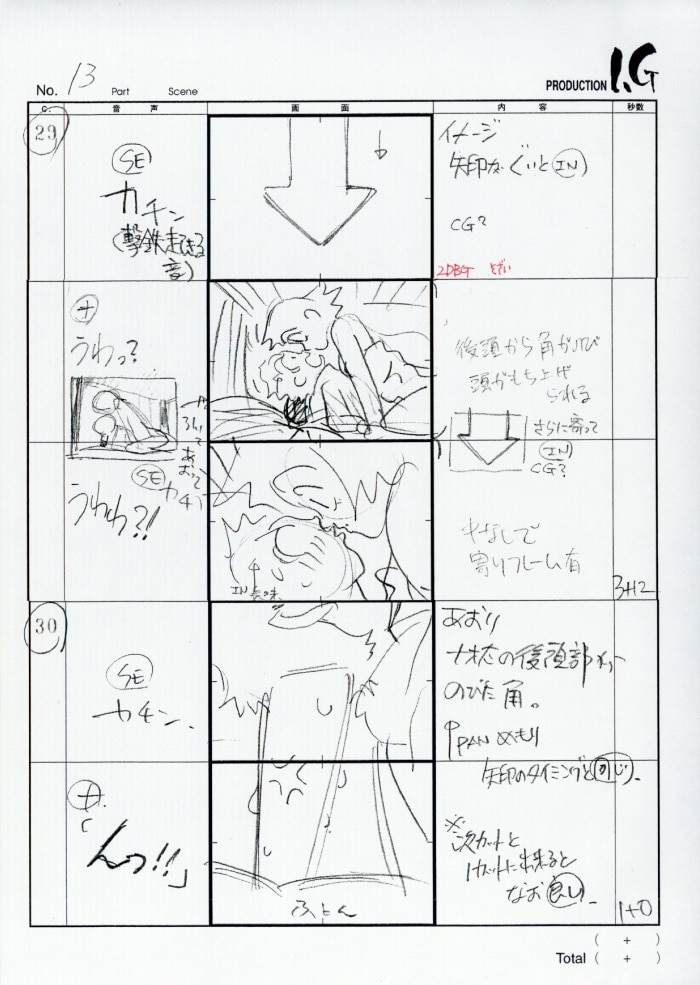 No. 13 Part Scene
PRODUCTION I.G
C. 音声 画面 内容 秒数
29
SE
カチン
(撃鉄
音)
イメージ
矢印が ぐいと IN)
CG?
ナ
うわっ?
後頭から角がのび
頭がもち上げ
られる
さらに寄って
IN
CG?
SE カチン
うわわ?!
中なしで
寄りフレーム有
IN
3+12
30
SE
カチン.
あおり
ナオ太の後頭部
のびた角。
↑PAN めもり
矢印のタイミングと同じ.
ナ
「んっ!!」
※次カットと
1カットに出来ると
なお良い.
ふとん
1+0
( + )
Total ( + )